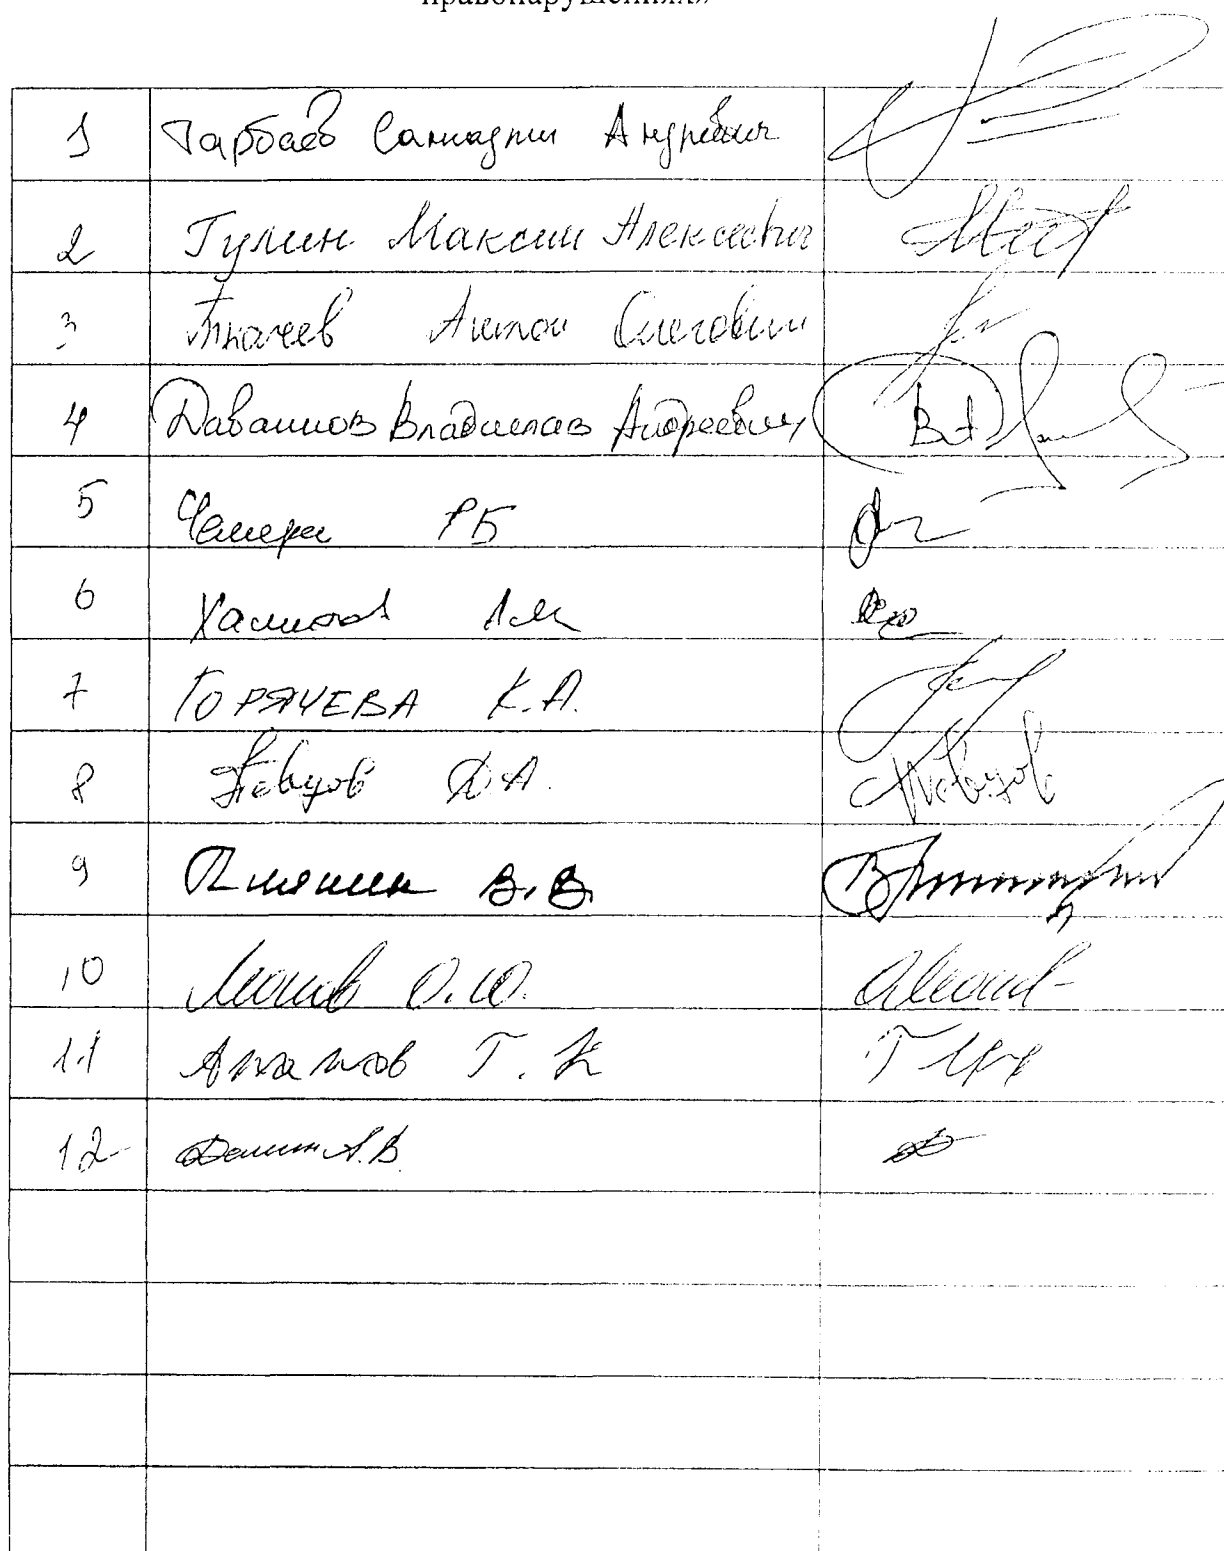 правонарушениях»
1 Тарбаев Санчадржи Андреевич
2 Гулин Максим Алексеевич
3 Ткачев Антон Олегович
4 Даванков Владислав Андреевич
5 Чемерис РБ
6 Хамитов А.М
7 ГОРЯЧЕВА К.А.
8 Певцов Д.А.
9 Плякин В.В.
10 Леонов О.Ю.
11 Арапов Г. К
12 Демин А.В.